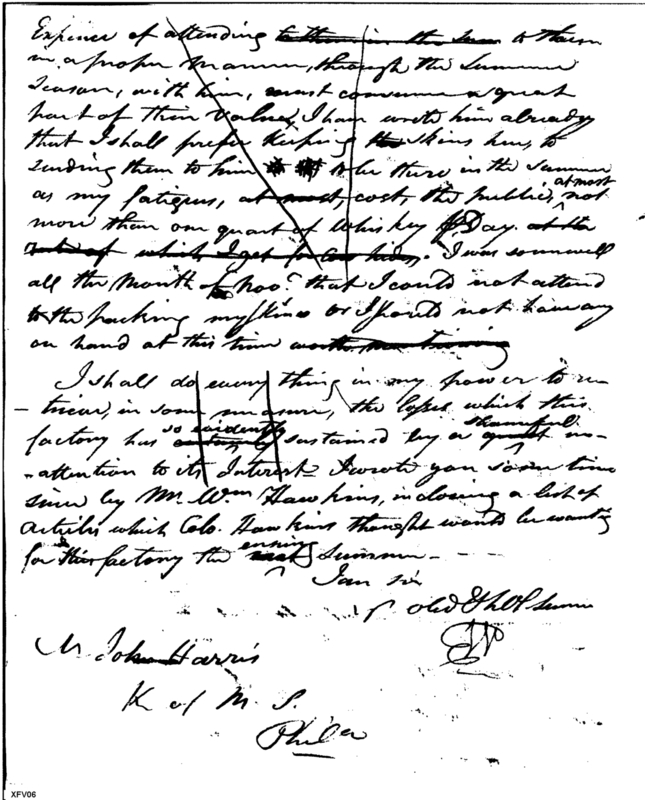 Expence of attending to them in the Sum to them
in a proper manner, through the Summer
Season, with him, must consume a great
part of their Value, I have wrote him already
that I shall prefer keeping the Skins here, to
sending them to him to be there in the Summer
as my fatigues, at most, cost, the public, at most not
more than one quart of Whiskey P Day. at the
rate of which I get for
I was so unwell
all the Month of Novr. that I could not attend
to the packing my Skins or I should not have any
on hand at this time
I shall do every thing in my power to re-
-trieve, in some measure, the losses which this
so evidently shameful
factory has sustained by a great in-
-attention to its Interest - I wrote you some time
since by Mr. Wm. Hawkins, inclosing a list of
Articles which Colo. Hawkins thought would be wantg
ensuing
for this factory the next Summer -
I am sir
yr obd
Mr John Harris
K of M S.
Phila
XFV06